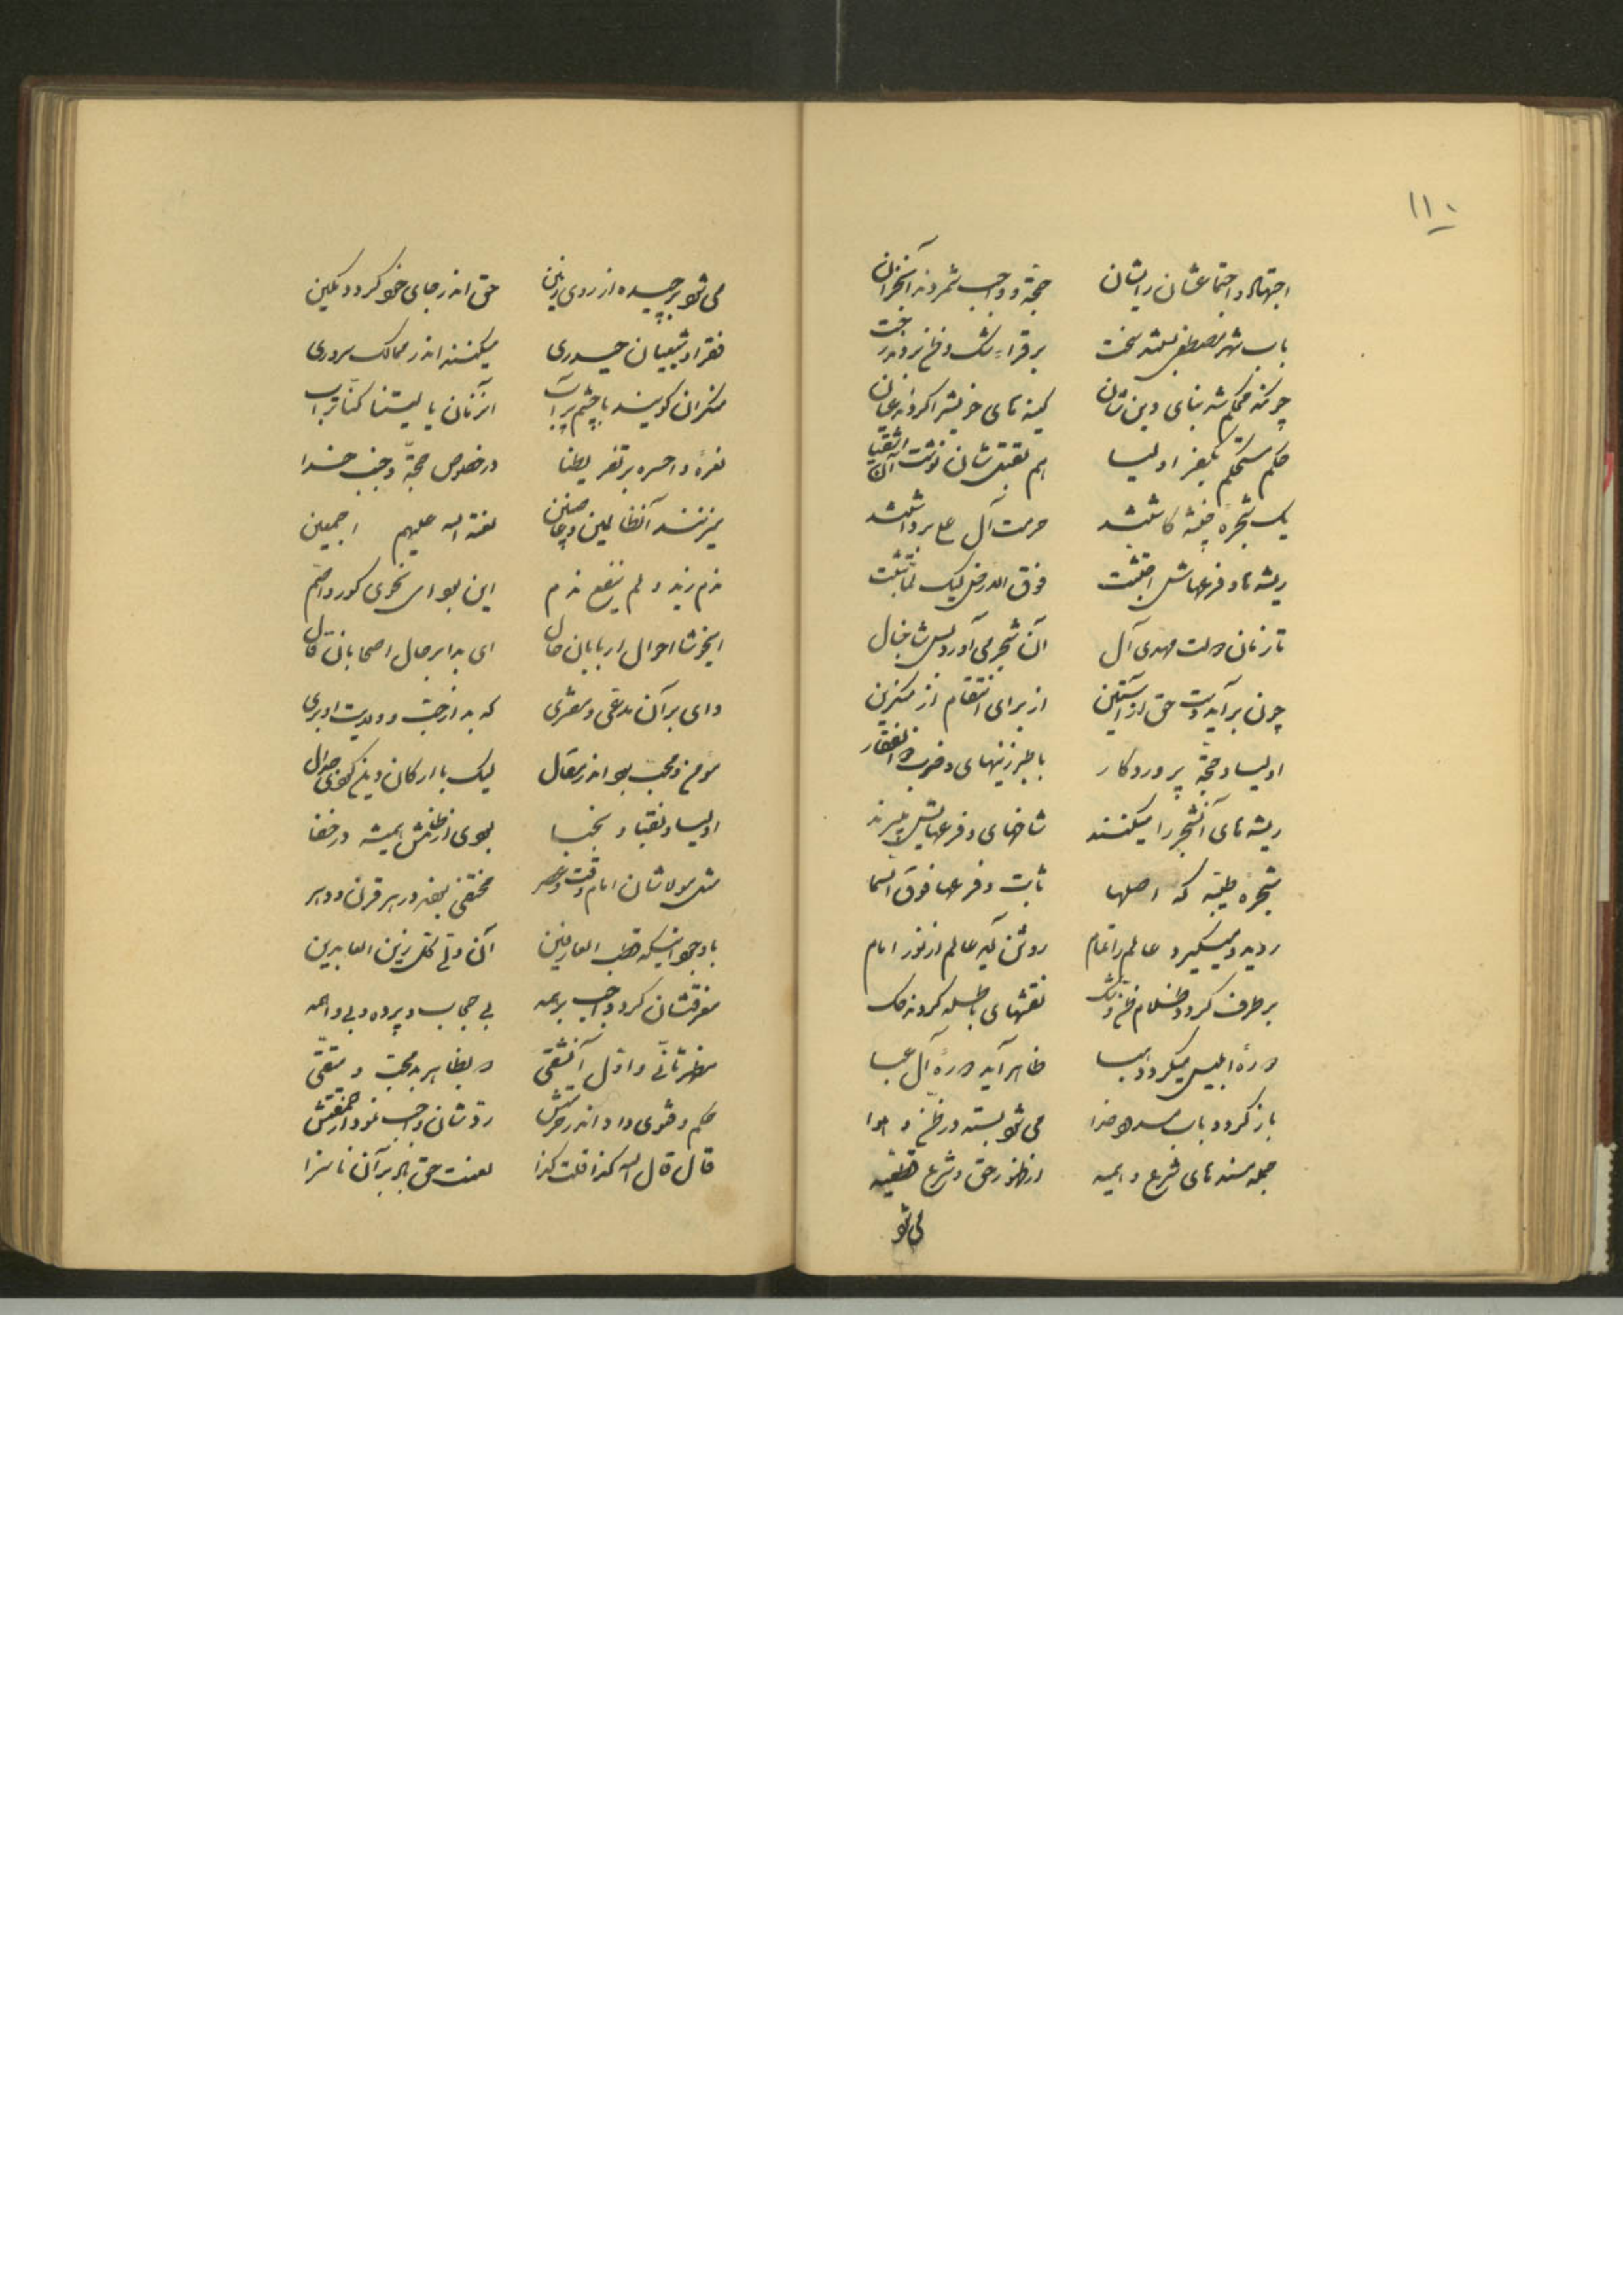 ۱۱۰
اجتهاد و اجتماعشان را ایشان حجة و واجب شمردند آنخران
باب شهر مصطفی بستند سخت
چونکه محکم شد بنای دینشان کینه های خویش را کردند عیان
حکم مستحکم بکفر اولیا هم بقتلشان نوشت آن اشقیا
یک شجره خبیثه کاشتند حرمت آل عبا برداشتند
ریشه ها و فرعهاش اجتثت فوق الارض لیک
تا زمان دولت مهدی آل آن شجر می آورد پس شاخبال
چون برآید دست حق از آستین از برای انتقام از منکرین
اولیا و حجة پروردگار با طبرزینهای و ضرب ذوالفقار
ریشه های آنشجر را میکنند شاخهای و فرعهایش
شجرهٔ طیبه که اصلها ثابت و فرعها فوق السما
روید و میگیرد عالم را تمام روشن آید عالم از نور امام
برطرف گردد ظلام ظن و شک نقشهای باطله گردند حک
دورهٔ ابلیس میگردد هبا ظاهر آید دورهٔ آل عبا
باز گردد باب مسدود خدا می شود بسته در ظن و هوا
جمله مسندهای شرع و ایمه از ظهور حق و شرع
می شود
می شود برچیده از روی زمین حق اندر جای خود گردد مکین
فقرا و شیعیان حیدری میکنند اندر ممالک سروری
منکران گویند با چشم پرآب آنزمان یا لیتنا کنا تراب
نعرهٔ وا حسره بر تفریطنا در خصوص حجة و جنب خدا
میزنند آنظالمین لعنة الله علیهم اجمعین
ندم زید و لم ینفع ندم این بود ای نحوی کور و اصم
ایخوشا احوال اربابان حال ای بدا بر حال اصحابان قال
وای بر آن مدعی و مفتری که بد از حب و ولایت او بری
مؤمن و محب بود اندر مقال لیک با ارکان دین جدال
اولیا و نقبا و نجبا بودی از ظلمش همیشه در خفا
مثل مولاشان امام وقت و عصر مختفی بودند در هر قرن و دهر
با وجود اینکه قطب العارفین آن ولی کل زین العابدین
معرفتشان کرد واجب بر همه بی حجاب و پرده و بی واهمه
مظهر ثانی و اول آنشقی در بظاهر بد محب و متقی
حکم و فتوی داد اندر ردشان واجب نمود از
قال قال الله کذا قلت کذا لعنت حق باد بر آن ناسزا